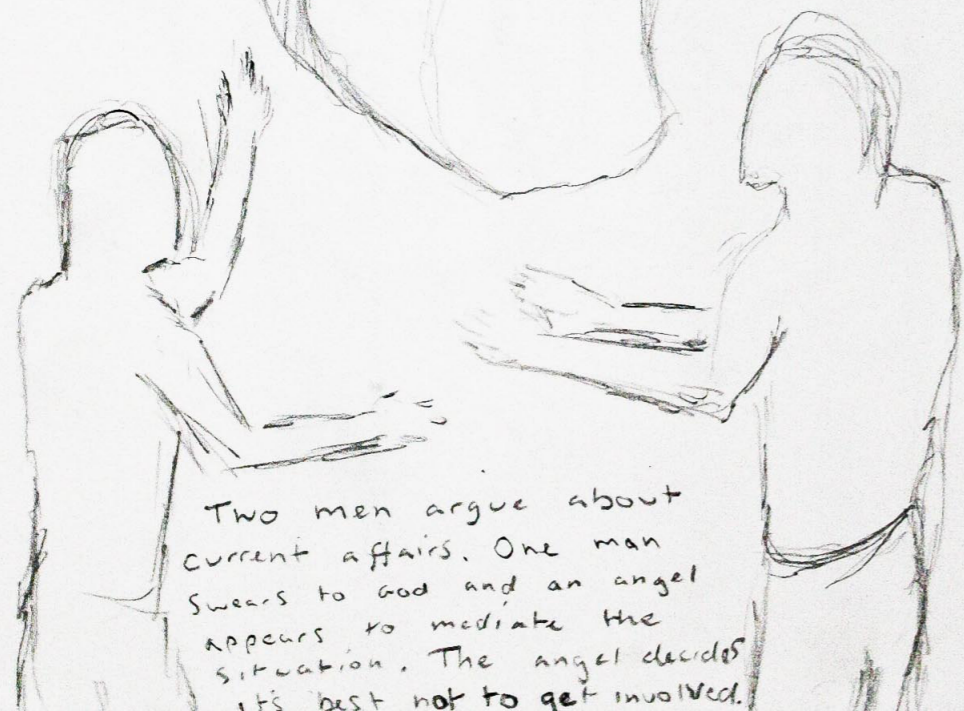 Two men argue about
current affairs. One man
swears to God and an angel
appears to mediate the
situation. The angel decides
it's best not to get involved.